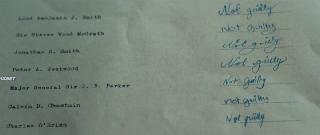 Lord Benjamin J. Smith Not guilty
Sir Steven Wood McGrath Not Guilty
Jonathan S. Smith Not guilty
Peter A. Westwood Not guilty
Major General Sir J. S. Parker Not Guilty
Calvin D. Not guilty
Charles O'Brian Not guilty